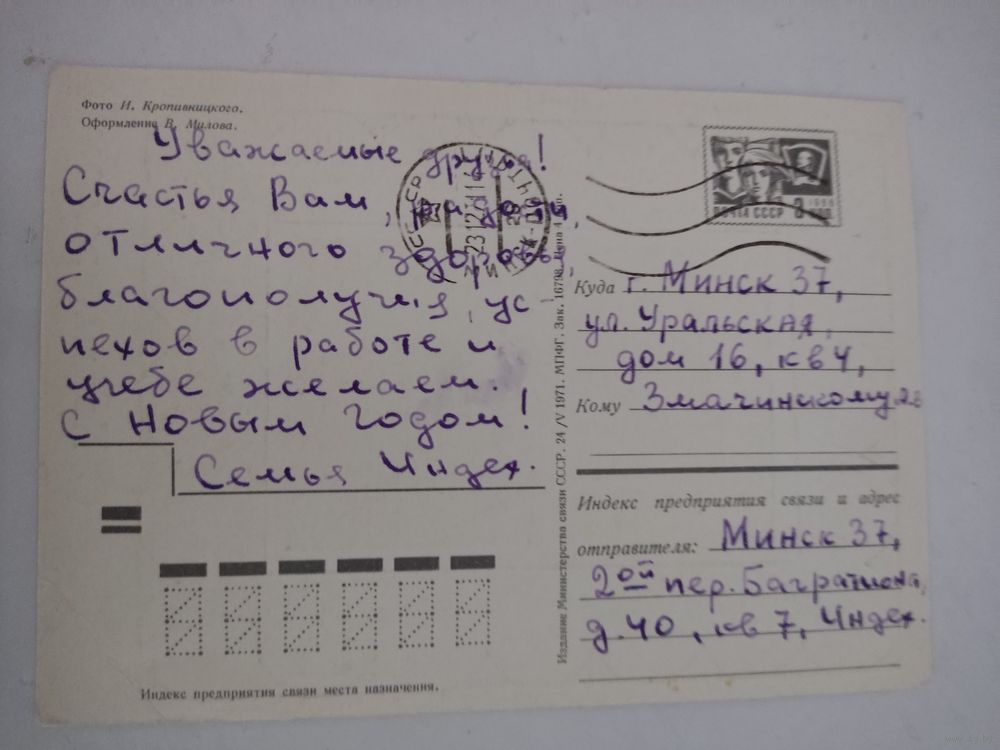 Фото И. Кропивницкого.
Оформление В. Милова.
Уважаемые друзья!
Счастья Вам, радости,
отличного здоровья,
благополучия, ус-
пехов в работе и
учебе желаем.
С Новым Годом!
Семья Индех.
Индекс предприятия связи места назначения.
Издание Министерства связи СССР. 24/V 1971. МПФГ. Зак. 16798. Цена 4 коп.
ПОЧТА СССР
Куда г. Минск 37,
ул. Уральская,
дом 16, кв 4,
Кому Змачинскому
Индекс предприятия связи и адрес
отправителя: Минск 37,
2ой пер. Багратиона,
д. 40, кв 7, Индех.